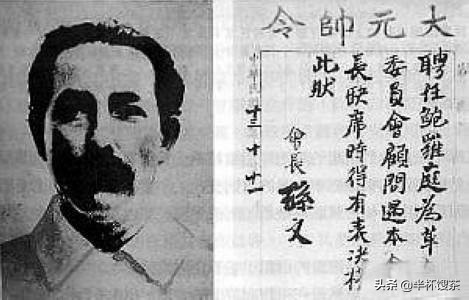 大元帥令
聘任鮑羅庭為革
委員會顧問遇本會
長缺席時得有表決權
此狀
會長 孫文
中華民 十三 十 十一
头条 @半杯馊茶